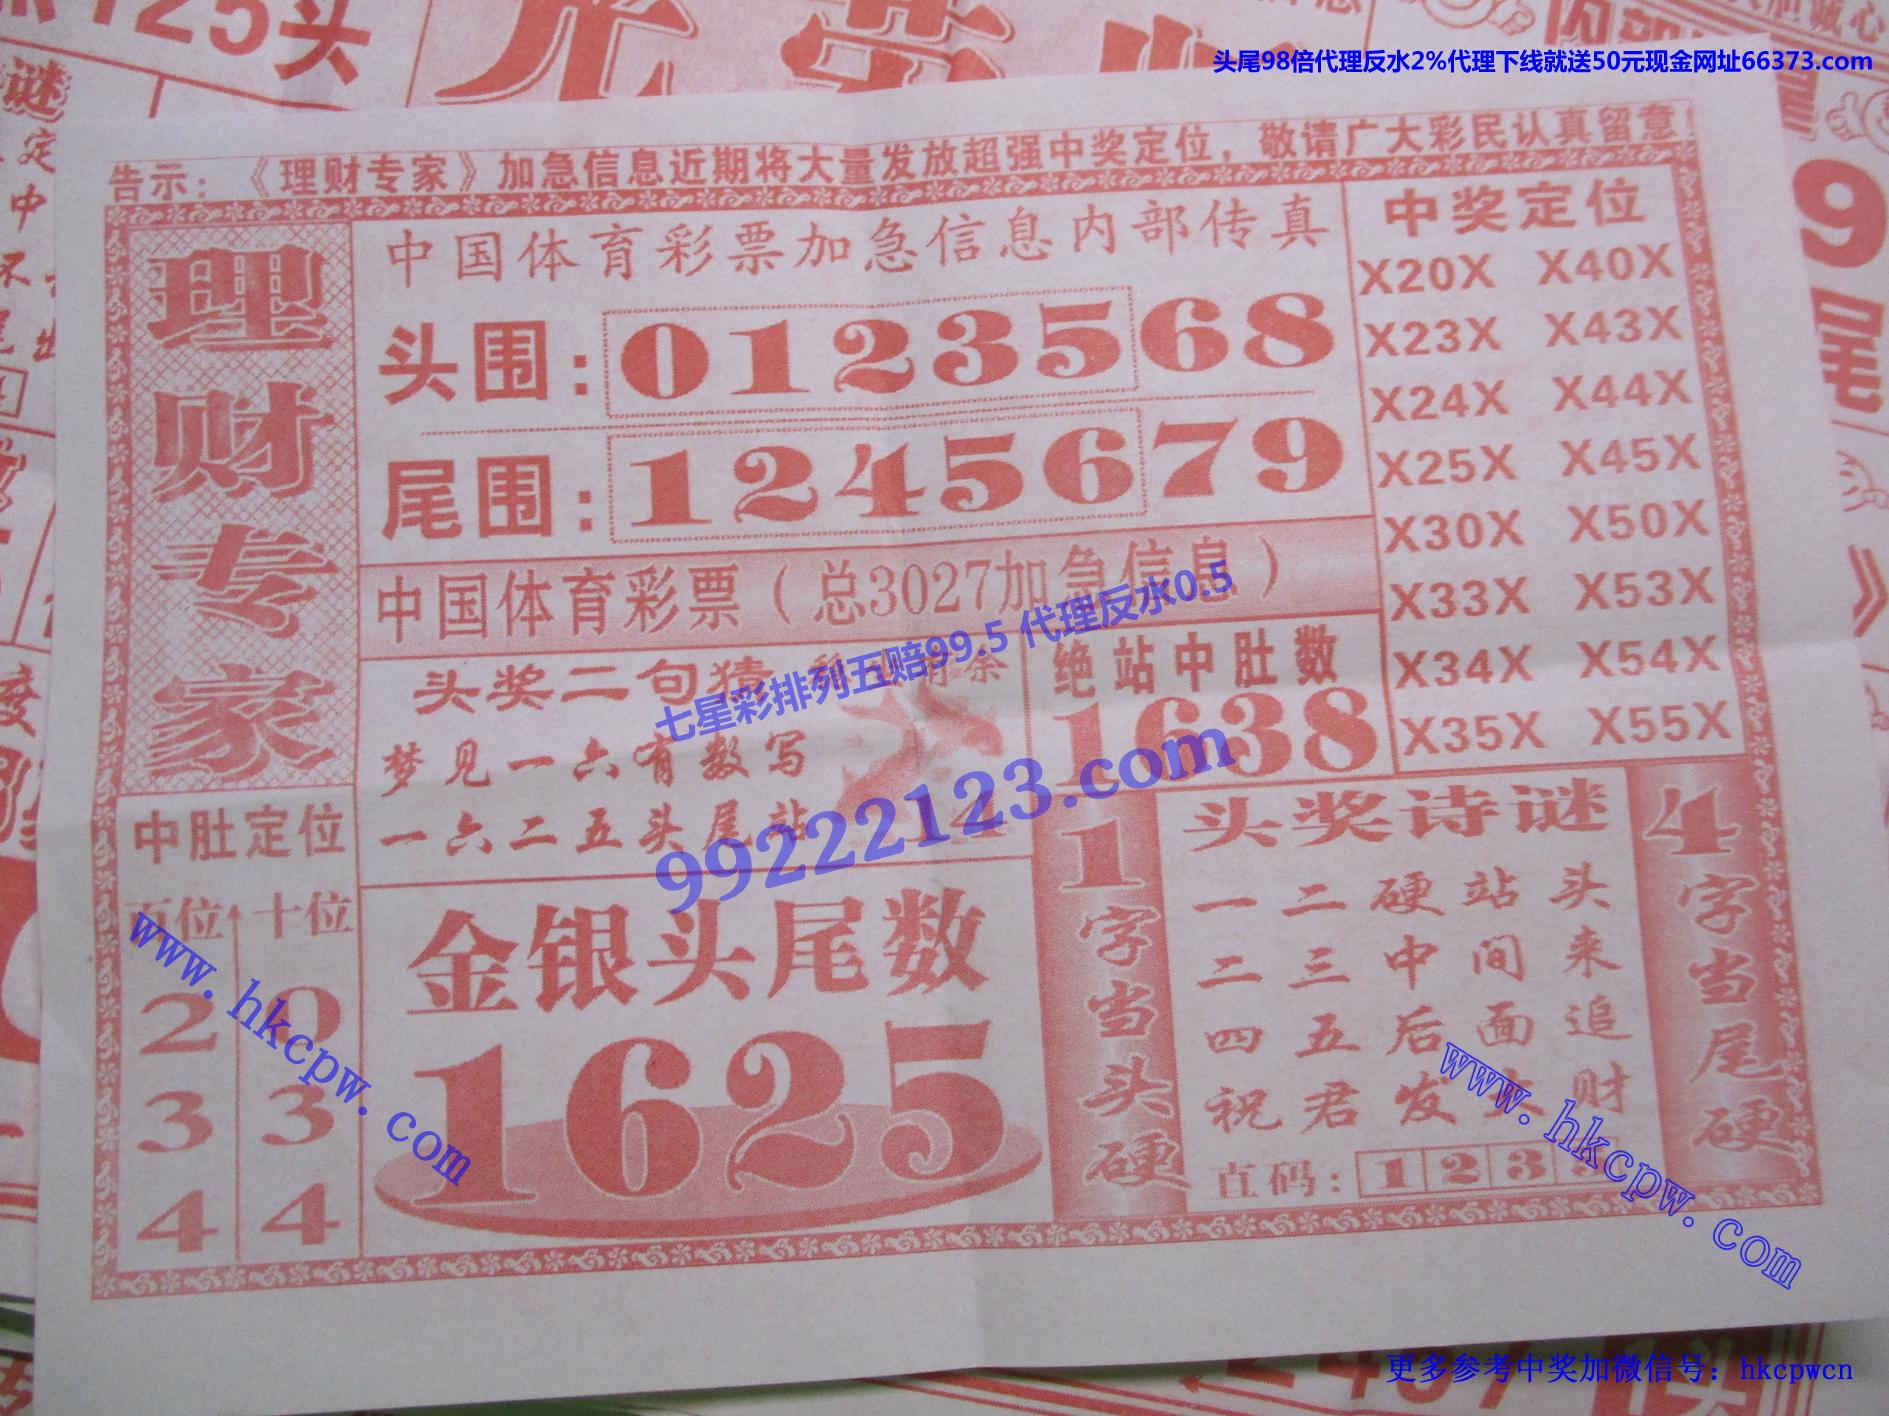 头尾98倍代理反水2%代理下线就送50元现金网址66373.com
125头
谜
9
尾
告示：《理财专家》加急信息近期将大量发放超强中奖定位，敬请广大彩民认真留意！
理财专家
中国体育彩票加急信息内部传真
头围：0123568
尾围：1245679
中奖定位
X20X X40X
X23X X43X
X24X X44X
X25X X45X
X30X X50X
X33X X53X
X34X X54X
X35X X55X
中国体育彩票（总3027加急信息）
七星彩排列五赔99.5 代理反水0.5
99222123.com
头奖二句猜
梦见一六有数写
一六二五头尾站
绝站中肚数
1638
中肚定位
百位 十位
2 0
3 3
4 4
www.hkcpw.com
金银头尾数
1625
1字当头硬
头奖诗谜
一二硬站头
二三中间来
四五后面追
祝君发大财
直码：1 2 3
4字当尾硬
www.hkcpw.com
更多参考中奖加微信号：hkcpwcn